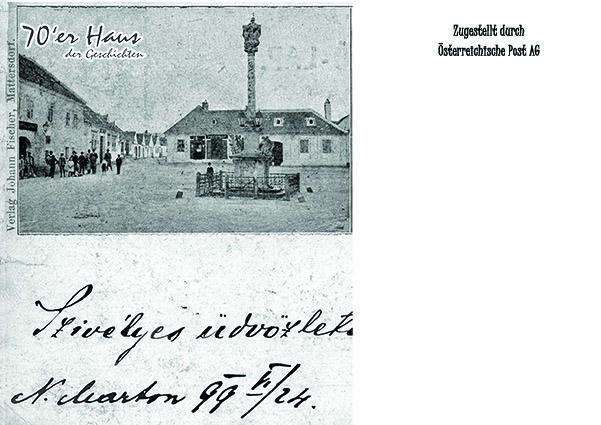 70'er Haus
der Geschichten
Verlag Johann Fischer, Mattersdorf.
Szivélyes üdvözlete
N. Marton 99 VI/24.
Zugestellt durch
Österreichische Post AG